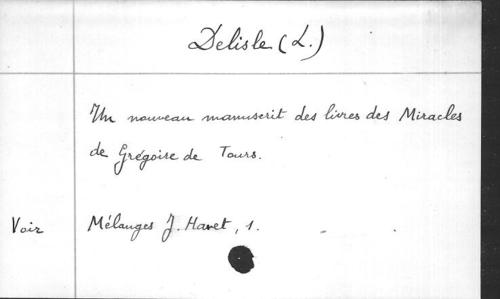 Delisle (L.)
Un nouveau manuscrit des livres des Miracles
de Grégoire de Tours.
Voir Mélanges J. Havet, 1.